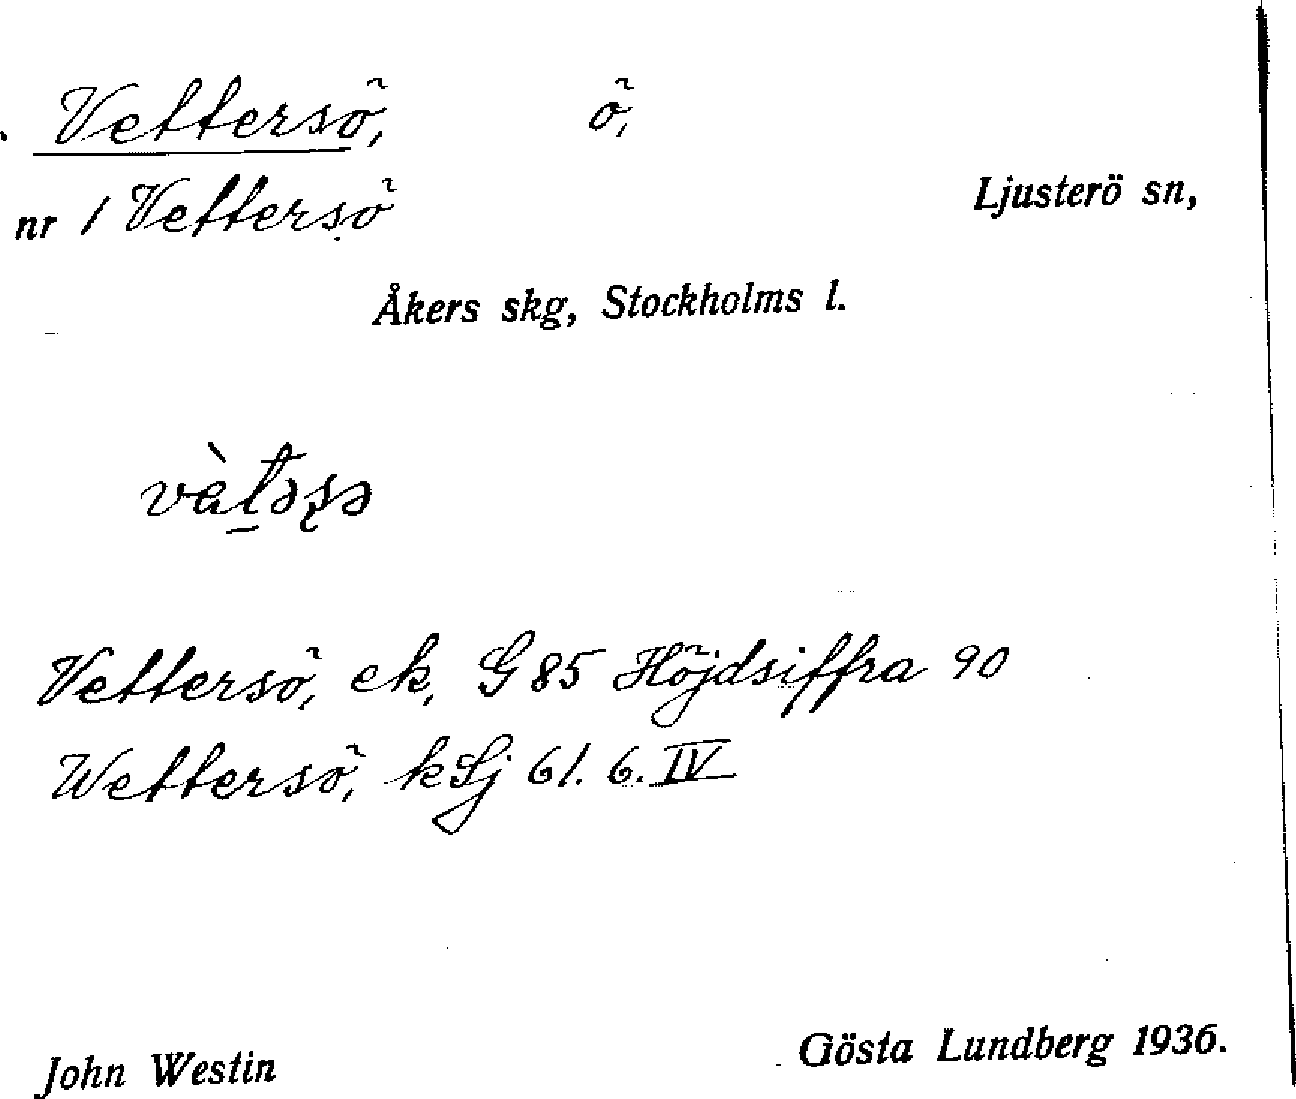 Vettersö, ö,
nr 1 Vettersö Ljusterö sn,
Åkers skg, Stockholms l.
Vettersö, ek, G 85 Höjdsiffra 90
Wettersö, kLj 61. 6. IV
John Westin Gösta Lundberg 1936.